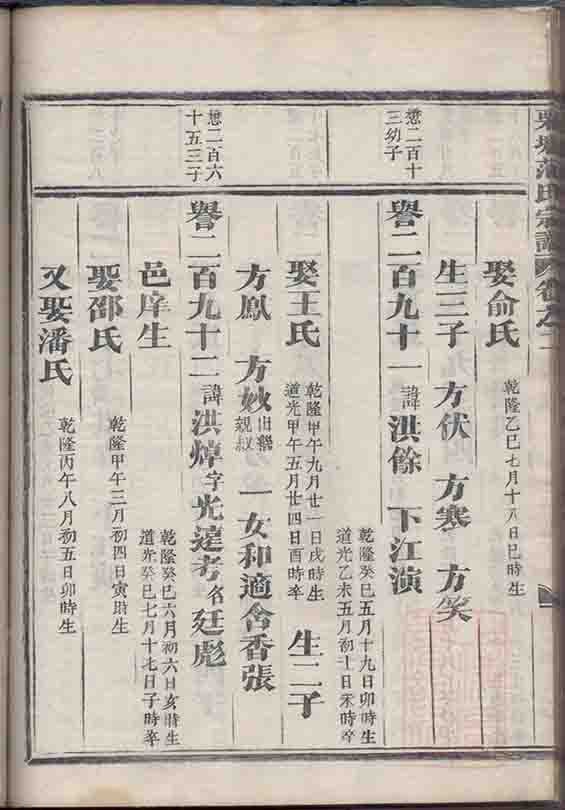 范氏宗譜 卷之二
娶俞氏 乾隆乙巳七月十八日巳時生
生三子 方伏 方寒 方笑
懋二百十三幼子
譽二百九十一 諱洪餘 下江演 乾隆癸巳五月十九日卯時生 道光乙未五月初十日未時卒
娶王氏 乾隆甲午九月廿一日戌時生 道光甲午五月廿四日酉時卒 生二子
方鳳 方妙出繼親叔 一女和適含香張
懋二百六十五三子
譽二百九十二 諱洪焯字光遠考名廷彪
邑庠生 乾隆癸巳六月初六日亥時生 道光癸巳七月十七日子時卒
娶邵氏 乾隆甲午三月初四日寅時生
又娶潘氏 乾隆丙午八月初五日卯時生